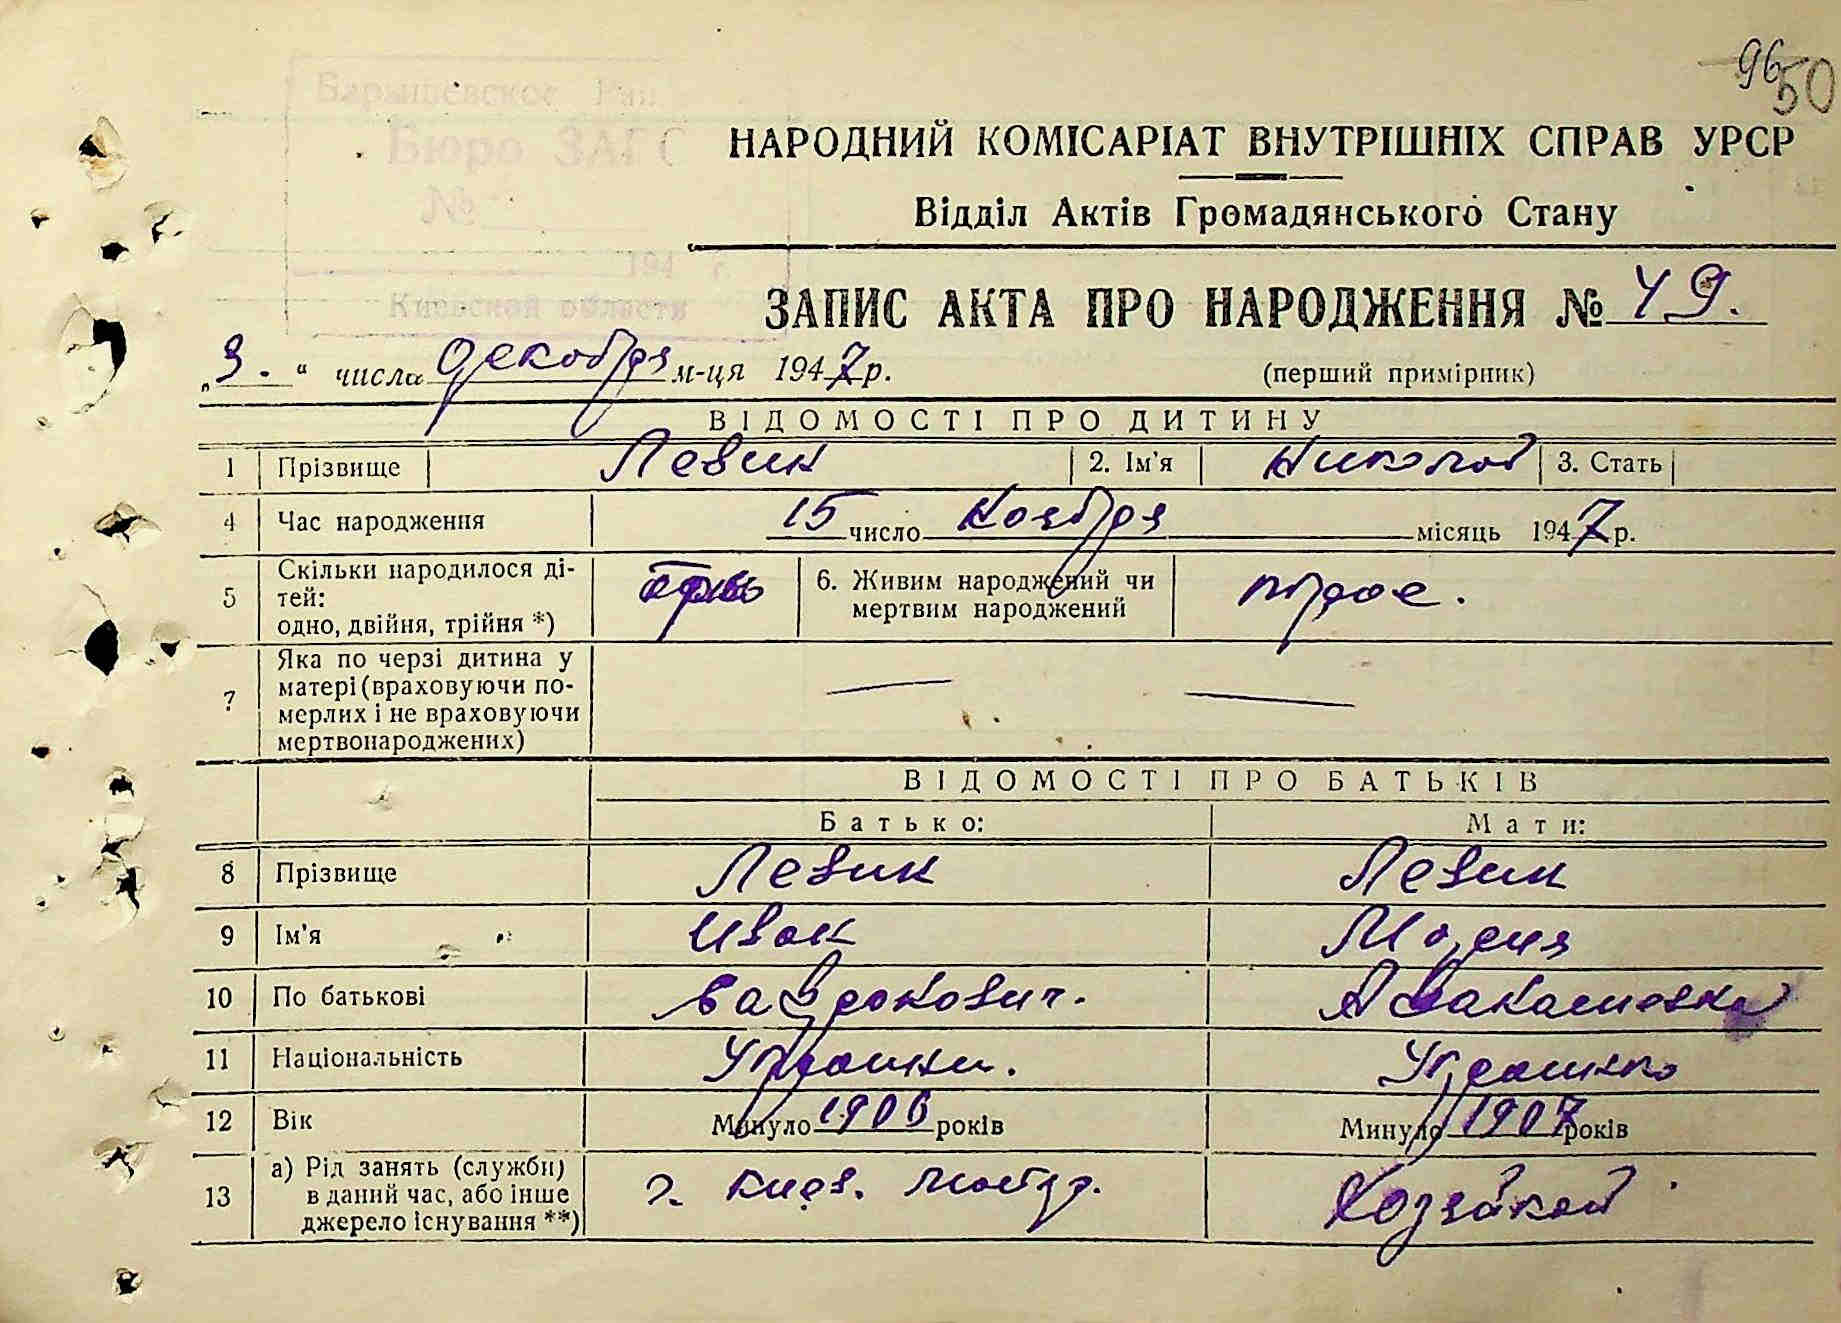 96 50
Барышевское Рай
Бюро ЗАГС
№
194 г.
Киевской области
НАРОДНИЙ КОМІСАРІАТ ВНУТРІШНІХ СПРАВ УРСР
Відділ Актів Громадянського Стану
ЗАПИС АКТА ПРО НАРОДЖЕННЯ № 49.
„3." числа декабря м-ця 1947 р. (перший примірник)
ВІДОМОСТІ ПРО ДИТИНУ
1 Прізвище Левик 2. Ім'я Николай 3. Стать
4 Час народження 15 число Ноября місяць 1947 р.
5 Скільки народилося ді-
тей:
одно, двійня, трійня *)
6. Живим народжений чи
мертвим народжений
7 Яка по черзі дитина у
матері (враховуючи по-
мерлих і не враховуючи
мертвонароджених)
ВІДОМОСТІ ПРО БАТЬКІВ
Батько: Мати:
8 Прізвище Левик Левик
9 Ім'я Иван Мария
10 По батькові
11 Національність Украинка
12 Вік Минуло 1906 років Минуло 1907 років
13 а) Рід занять (служби)
в даний час, або інше
джерело існування **)
г. Киев.